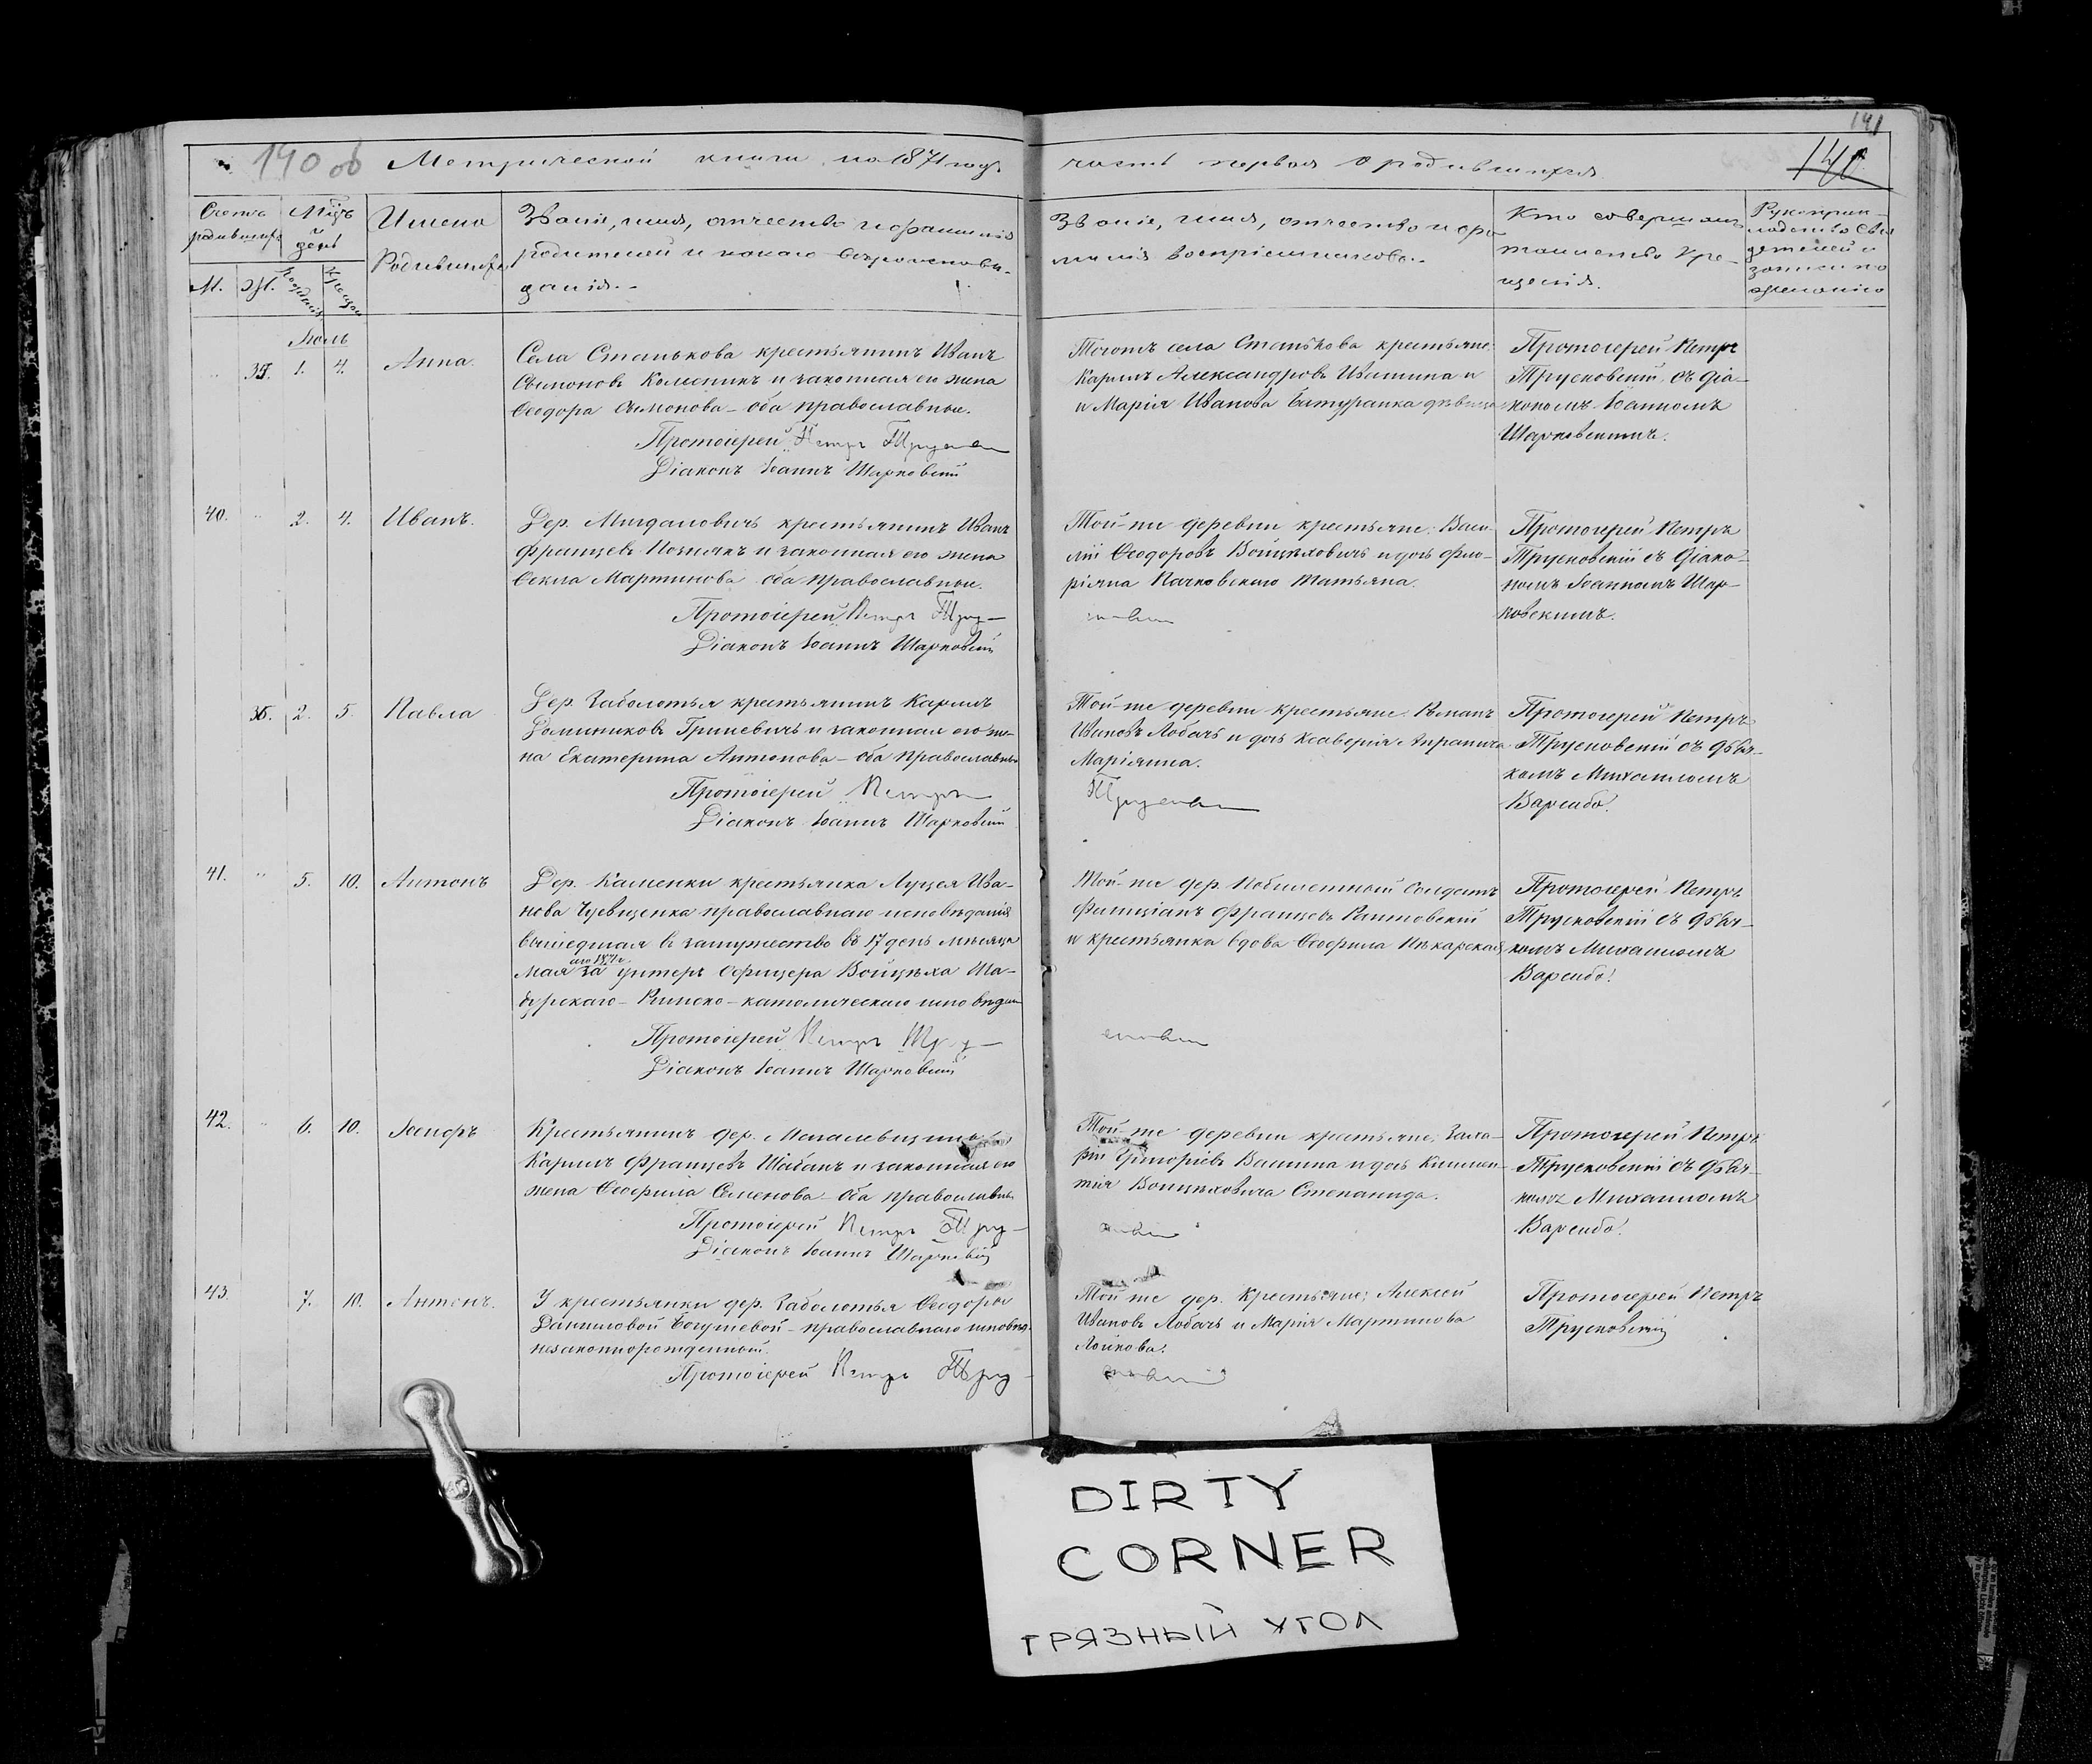 141
140 об Метрической книги на 1871 годъ часть первая о родившихся 140
Счетъ родившихся
М. Ж.
Мѣсяцъ и день
Рожденія Крещен
Имена Родившихся
Званіе, имя, отчество и фамилія
родителей и какого вѣроисповѣ-
данія.
Званіе, имя, отчество и фа-
милія воспріемниковъ.
Кто совершалъ
таинство Кре-
щенія.
Рукоприк-
ладство сви
детелей о
записи по
желанію
Іюль
1. 4. Анна.
Села Станькова крестьянинъ Иванъ
Симоновъ и законная его жена
Ѳеодора Симонова - оба православные.
Протоіерей Петръ
Діаконъ Іоаннъ Шарковскій
Тогожъ села Станькова крестьяне:
Карлъ Александровъ Ивашина и
и Марія Иванова Батуранка дѣвица
Протоіерей Петръ
Трусковскій, съ діа-
кономъ Іоанномъ
Шарковскимъ.
40. " 2. 4. Иванъ.
Дер. Мигдаловичъ крестьянинъ Иванъ
Францевъ Познякъ и законная его жена
Ѳекла Мартинова оба православные.
Протоіерей Петръ Трус-
Діаконъ Іоаннъ Шарковскій
Той-же деревни крестьяне: Васи-
лій Ѳеодоровъ Войцѣховичъ и дочь Фло-
ріяна Пачковскаго Татьяна.
ковскій
Протоіерей Петръ
Трусковскій съ Діако-
номъ Іоанномъ Шар-
ковскимъ.
2. 5. Павла
Дер. Заболотья крестьянинъ Карлъ
Доминиковъ Гриневичъ и законная его же-
на Екатерина Антонова - оба православные
Протоіерей Петръ
Діаконъ Іоаннъ Шарковскій
Той-же деревни крестьяне: Романъ
Ивановъ Лобачъ и дочь Ксаверія
Маріянна.
Трусковскій
Протоіерей Петръ
Трусковскій съ дьяч-
комъ Михаиломъ
Варсабо.
41. " 5. 10. Антонъ
Дер. Каменки крестьянка Луцея Ива-
нова православнаго исповѣданія
вышедшая в замужество въ 17 день мѣсяца
сего 1871 г.
Мая за унтеръ Офицера Войцѣха Ма-
зурскаго - Римско-католическаго исповѣдан
Протоіерей Петръ Трус-
Діаконъ Іоаннъ Шарковскій
Той-же дер. солдатъ
Фелиціанъ Францевъ
и крестьянка вдова Ѳеофила Пекарская
ковскій
Протоіерей Петръ
Трусковскій съ дьяч-
комъ Михаиломъ
Варсабо.
42. " 6. 10.
Крестьянинъ дер.
Карлъ Францевъ Шабанъ и законная его
жена Ѳеофила Семенова - оба православные
Протоіерей Петръ Трус-
Діаконъ Іоаннъ Шарковскій
Той-же деревни крестьяне; Заха-
рій Григоріевъ Вашина и дочь Климен-
тія Войцѣховича Степанида.
ковскій
Протоіерей Петръ
Трусковскій съ дьяч-
комъ Михаиломъ
Варсабо.
43. 7. 10. Антонъ.
У крестьянки дер. Заболотья Ѳеодоры
Даниловой Богушевой - православнаго исповѣд.
незаконнорожденный.
Протоіерей Петръ Трус-
Той же дер. крестьяне; Алексѣй
Ивановъ Лобачъ и Марія Мартинова
Лойкова.
ковскій
Протоіерей Петръ
Трусковскій
DIRTY
CORNER
ГРЯЗНЫЙ УГОЛ